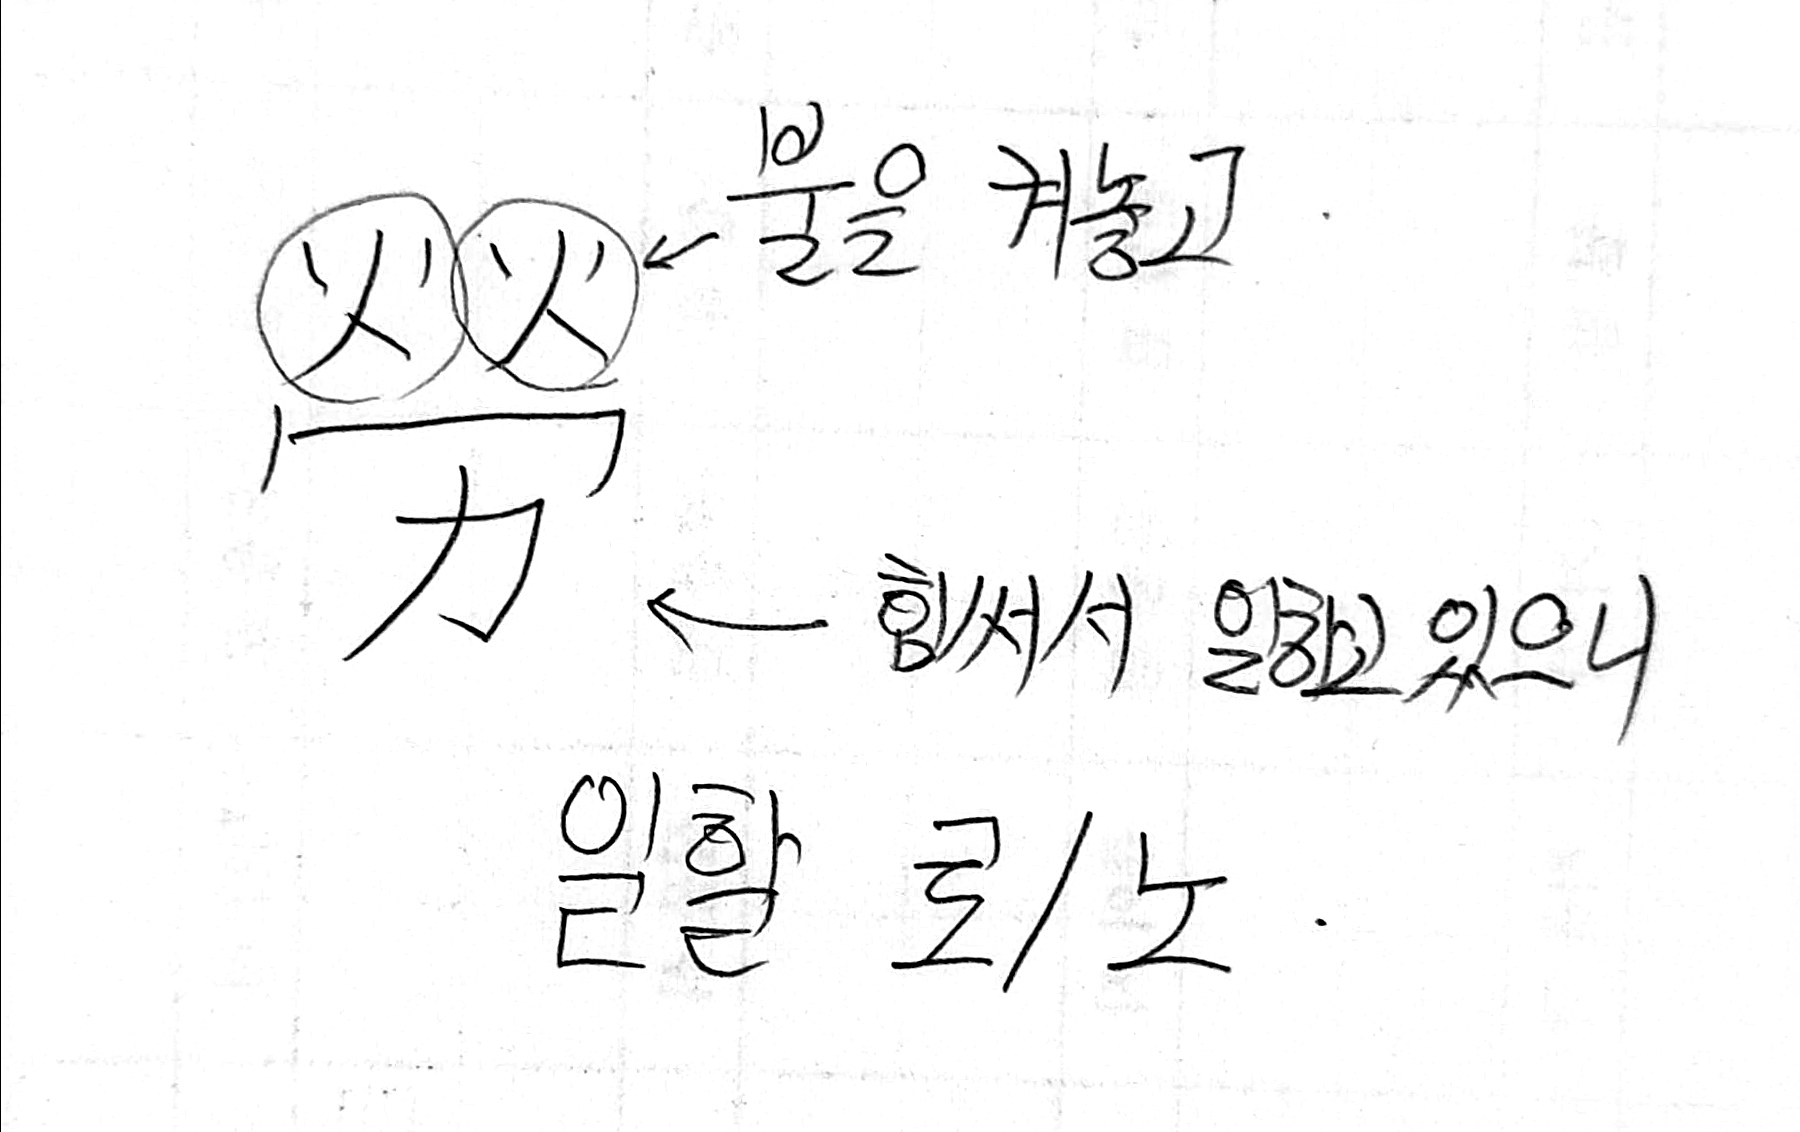 勞
불을 켜놓고
힘써서 일하고 있으니
일할 로/노.